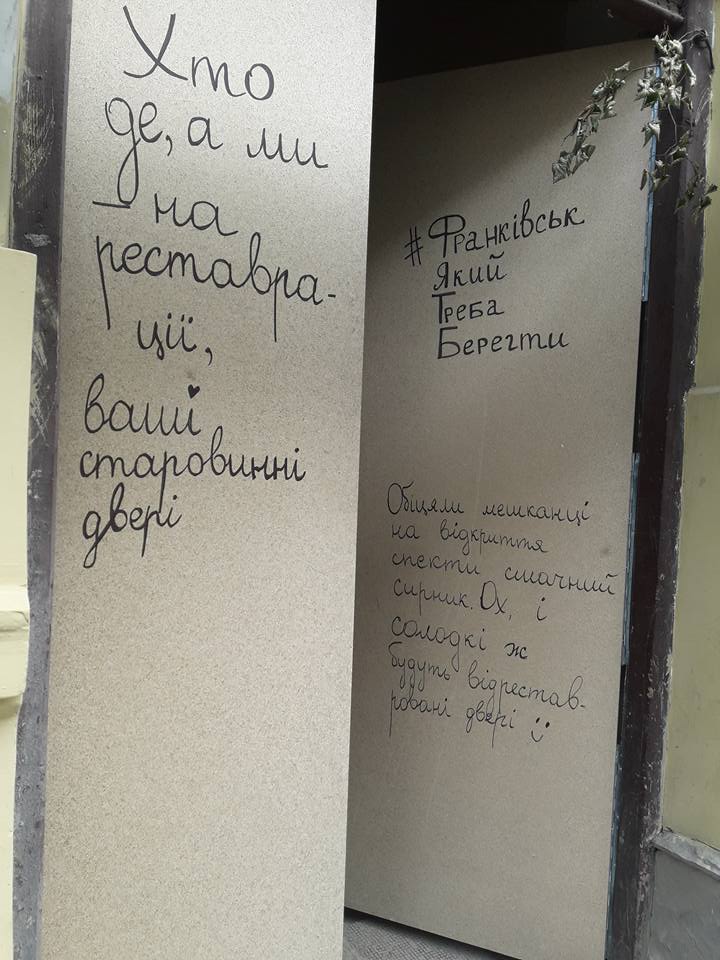 Хто
де, а ми
– на
реставра-
ції,
ваші
старовинні
двері
#Франківськ
Який
Треба
Берегти
Обіцяли мешканці
на відкриття
спекти смачний
сирник. Ох, і
солодкі ж
будуть відрестав-
ровані двері